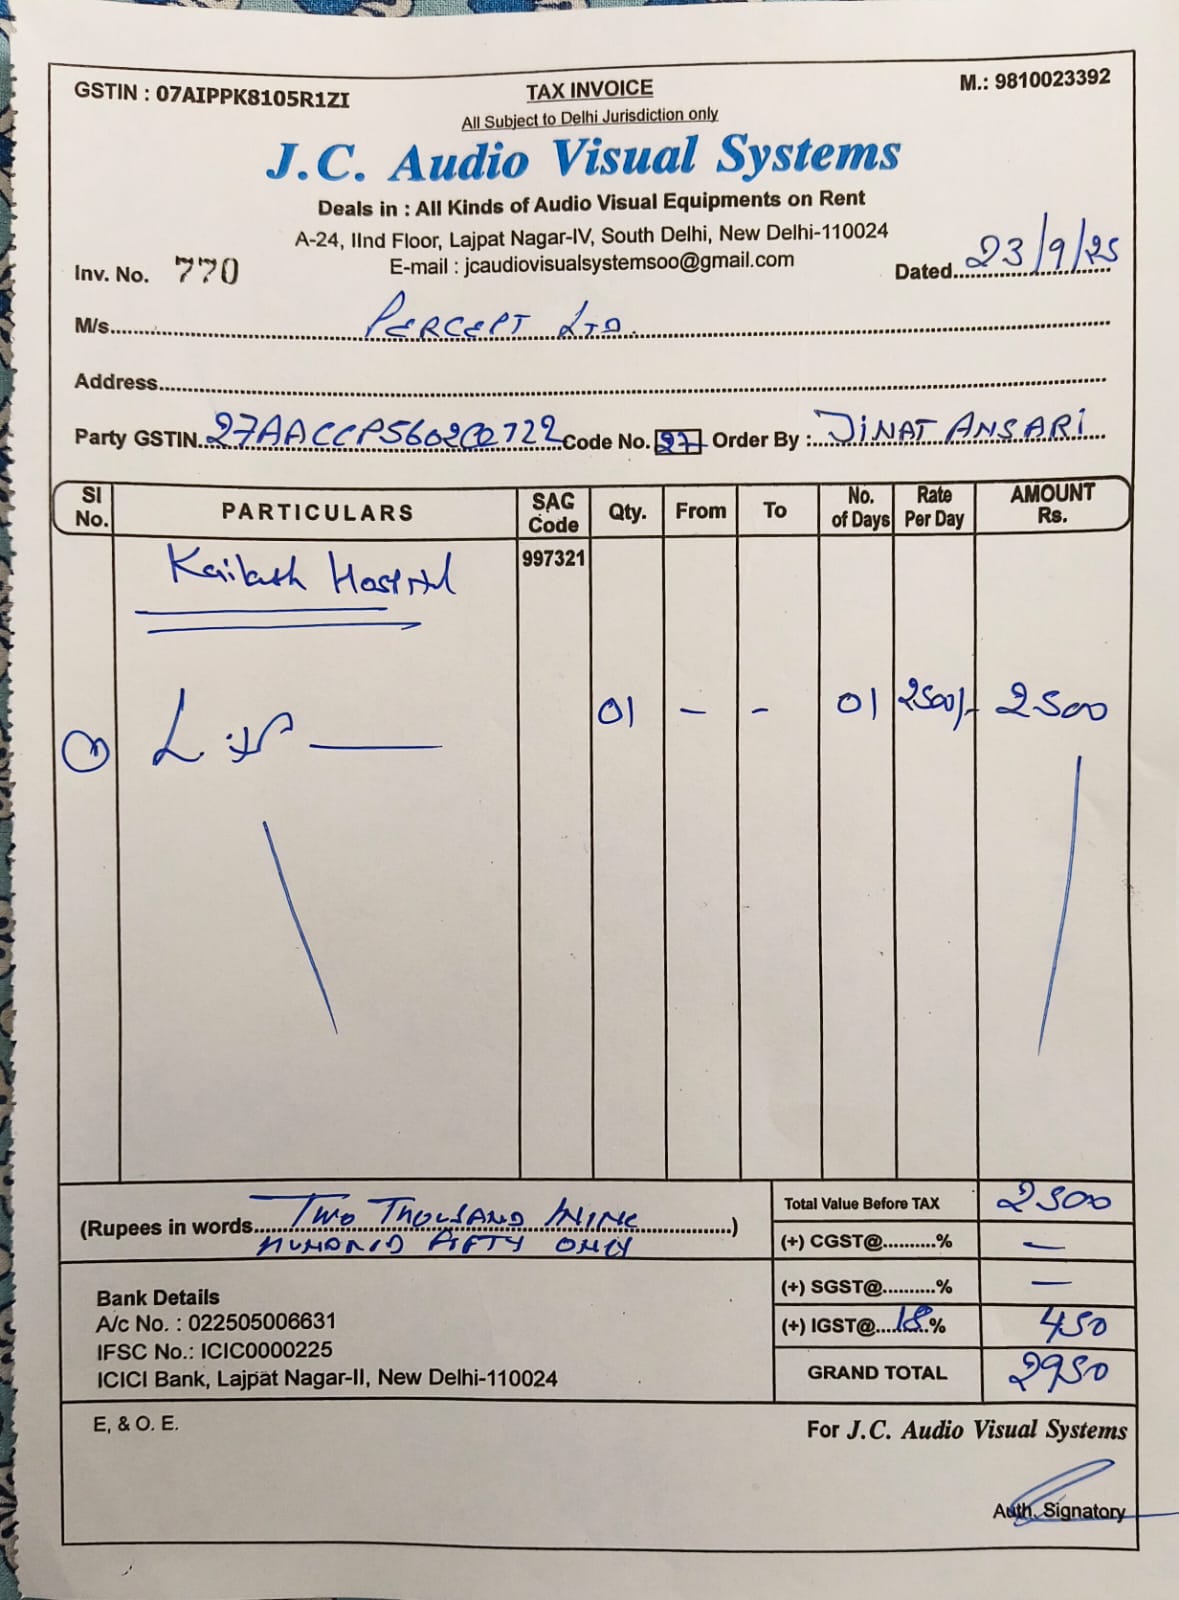 GSTIN : 07AIPPK8105R1ZI
TAX INVOICE
M.: 9810023392
All Subject to Delhi Jurisdiction only
J.C. Audio Visual Systems
Deals in : All Kinds of Audio Visual Equipments on Rent
A-24, IInd Floor, Lajpat Nagar-IV, South Delhi, New Delhi-110024
E-mail : jcaudiovisualsystemsoo@gmail.com
Inv. No. 770
Dated 23/9/25
M/s. PERCEPT LTD.
Address
Party GSTIN. 27AACCP5602 Code No. 27 Order By : JINAT ANSARI
Sl No. PARTICULARS SAC Code Qty. From To No. of Days Rate Per Day AMOUNT Rs.
Kailash Hospital 997321
01 - - 01 2500/- 2500
(Rupees in words TWO THOUSAND NINE )
HUNDRED FIFTY ONLY
Total Value Before TAX 2500
(+) CGST@..........% —
(+) SGST@..........% —
(+) IGST@....18..% 450
GRAND TOTAL 2950
Bank Details
A/c No. : 022505006631
IFSC No.: ICIC0000225
ICICI Bank, Lajpat Nagar-II, New Delhi-110024
E, & O. E.
For J.C. Audio Visual Systems
Auth. Signatory